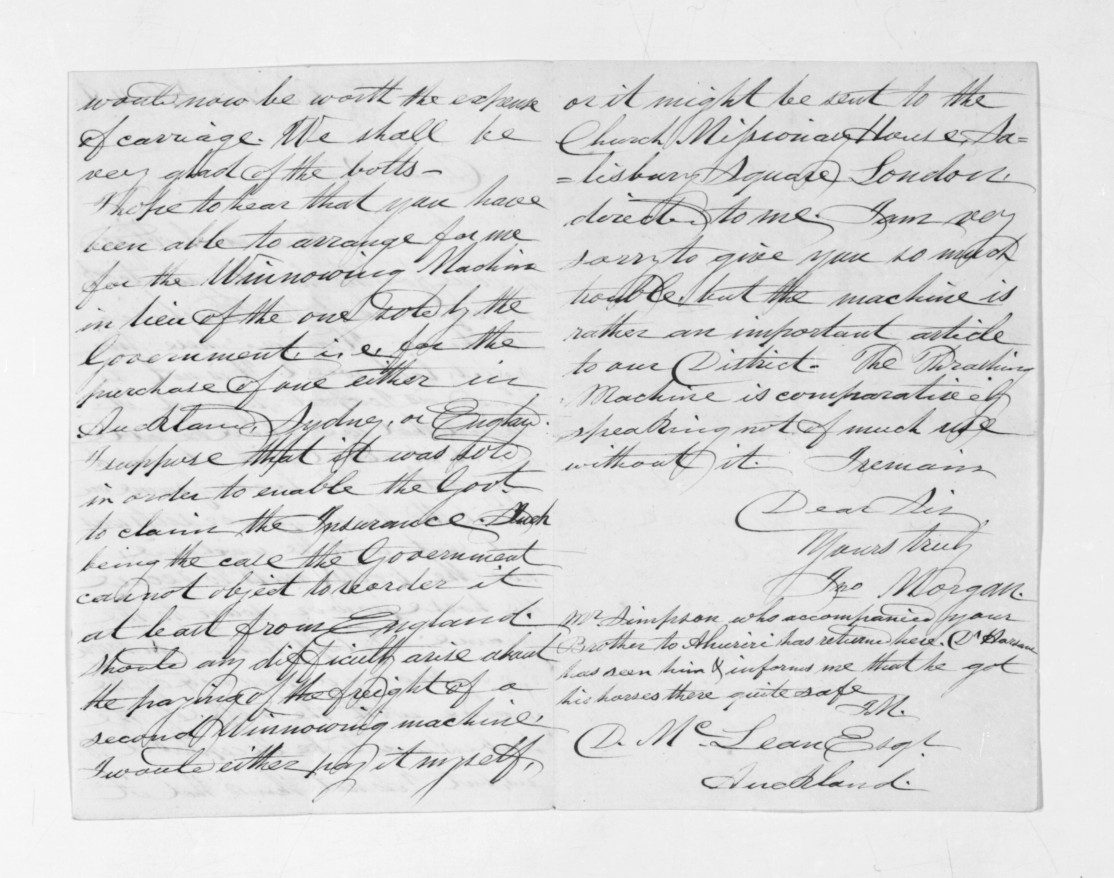 would now be worth the expense
of carriage. We shall be
very glad of the bolts -
I hope to hear that you have
been able to arrange for me
for the Winnowing Machine
in lieu of the one sold by the
Government i.e. for the
purchase of one either in
Auckland, Sydney, or England.
I suppose that it was sold
in order to enable the Govt.
to claim the Insurance. Such
being the case the Government
cannot object to reorder it
at least from England.
should any difficulty arise about
the paying of the freight of a
second Winnowing machine,
I would either pay it myself,
or it might be sent to the
Church Missionary House, Sa=
=lisbury Square, London
directed to me. I am very
sorry to give you so much
trouble, but the machine is
rather an important article
to our District. The Thrashing
Machine is comparatively
speaking not of much use
without it. I remain
Dear Sir
Yours truly
Jno Morgan.
Mr Simpson who accompanied your
Brother to Ahuriri has returned here. Dr
has seen him & informs me that he got
his horses there quite safe
J.M.
D. McLean Esqr.
Auckland.